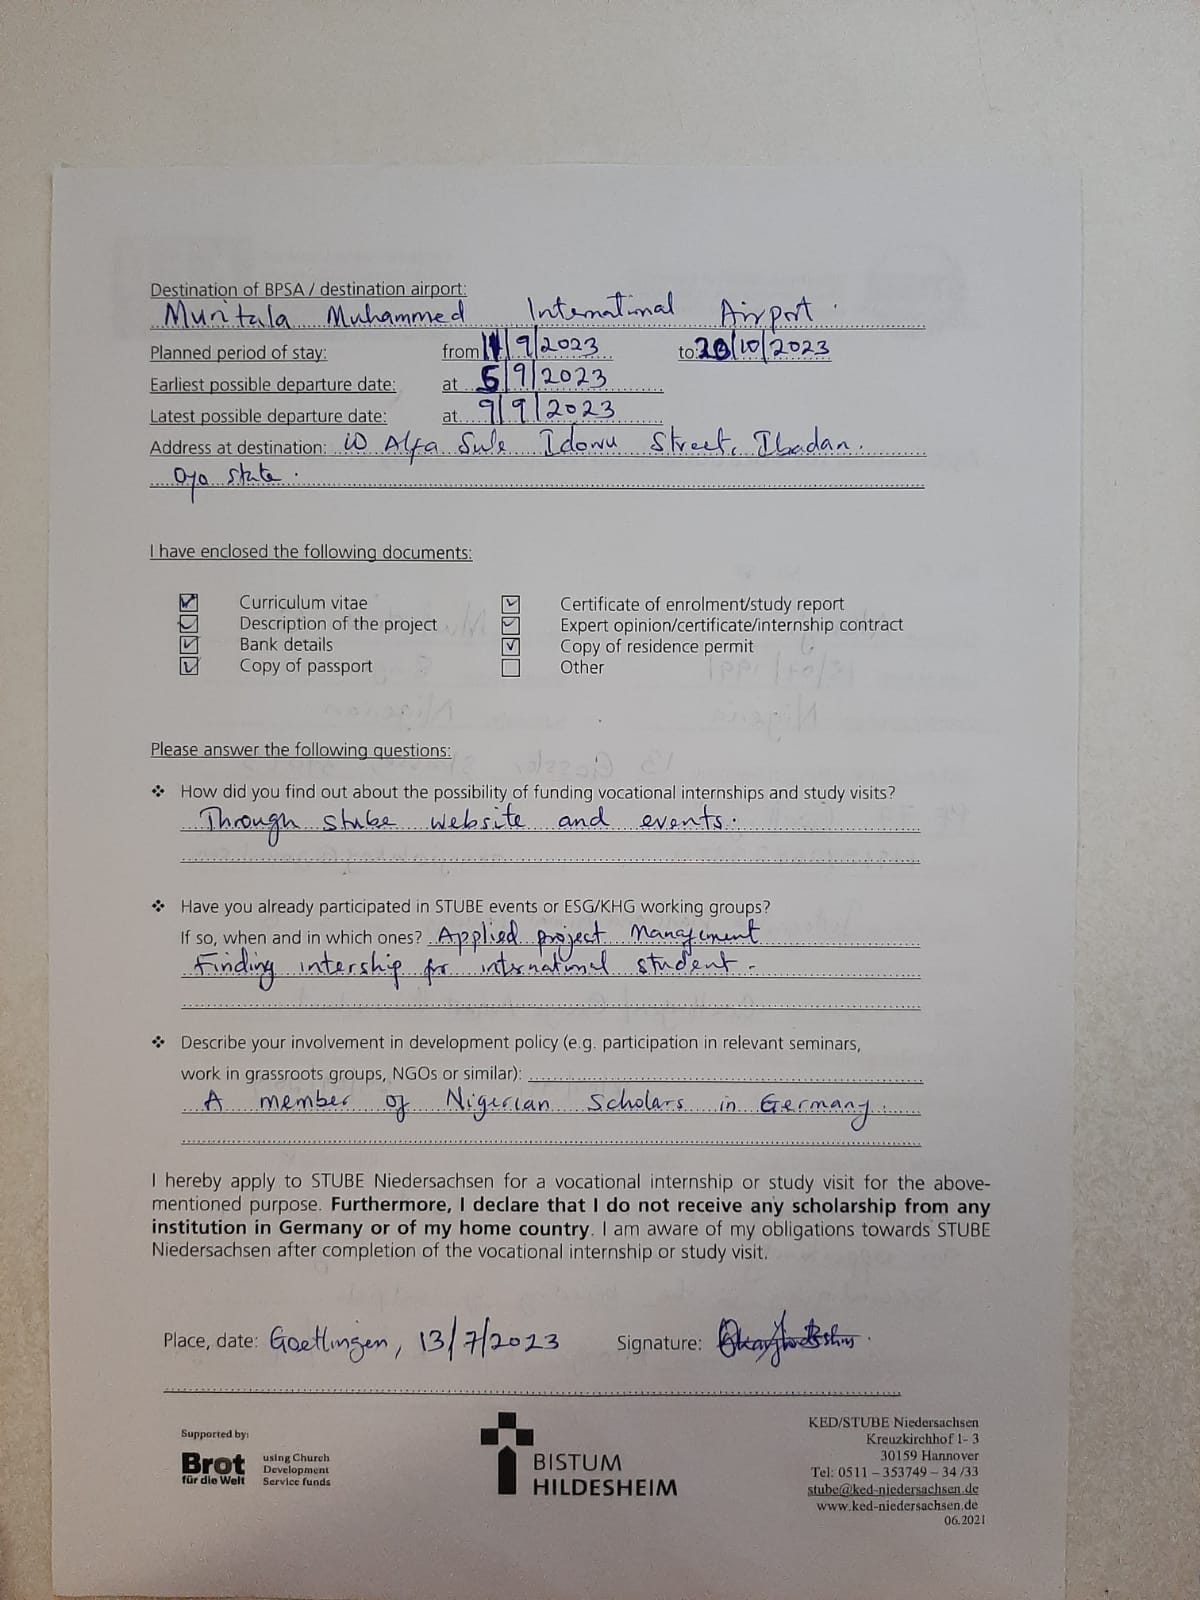 Destination of BPSA / destination airport:
Muritala Muhammed International Airport.
Planned period of stay: from 11/9/2023 to: 20/10/2023
Earliest possible departure date: at 5/9/2023
Latest possible departure date: at 9/9/2023
Address at destination: 10 Alfa Sule Idowu Street, Ibadan.
Oyo state.
I have enclosed the following documents:
Curriculum vitae Certificate of enrolment/study report
Description of the project Expert opinion/certificate/internship contract
Bank details Copy of residence permit
Copy of passport Other
Please answer the following questions:
❖ How did you find out about the possibility of funding vocational internships and study visits?
Through stube website and events.
❖ Have you already participated in STUBE events or ESG/KHG working groups?
If so, when and in which ones? Applied project Management
Finding intership for international student.
❖ Describe your involvement in development policy (e.g. participation in relevant seminars,
work in grassroots groups, NGOs or similar):
A member of Nigerian Scholars in Germany.
I hereby apply to STUBE Niedersachsen for a vocational internship or study visit for the above-
mentioned purpose. Furthermore, I declare that I do not receive any scholarship from any
institution in Germany or of my home country. I am aware of my obligations towards STUBE
Niedersachsen after completion of the vocational internship or study visit.
Place, date: Goettingen, 13/7/2023 Signature:
Supported by:
Brot
für die Welt
using Church
Development
Service funds
BISTUM
HILDESHEIM
KED/STUBE Niedersachsen
Kreuzkirchhof 1- 3
30159 Hannover
Tel: 0511 – 353749 – 34 /33
stube@ked-niedersachsen.de
www.ked-niedersachsen.de
06.2021